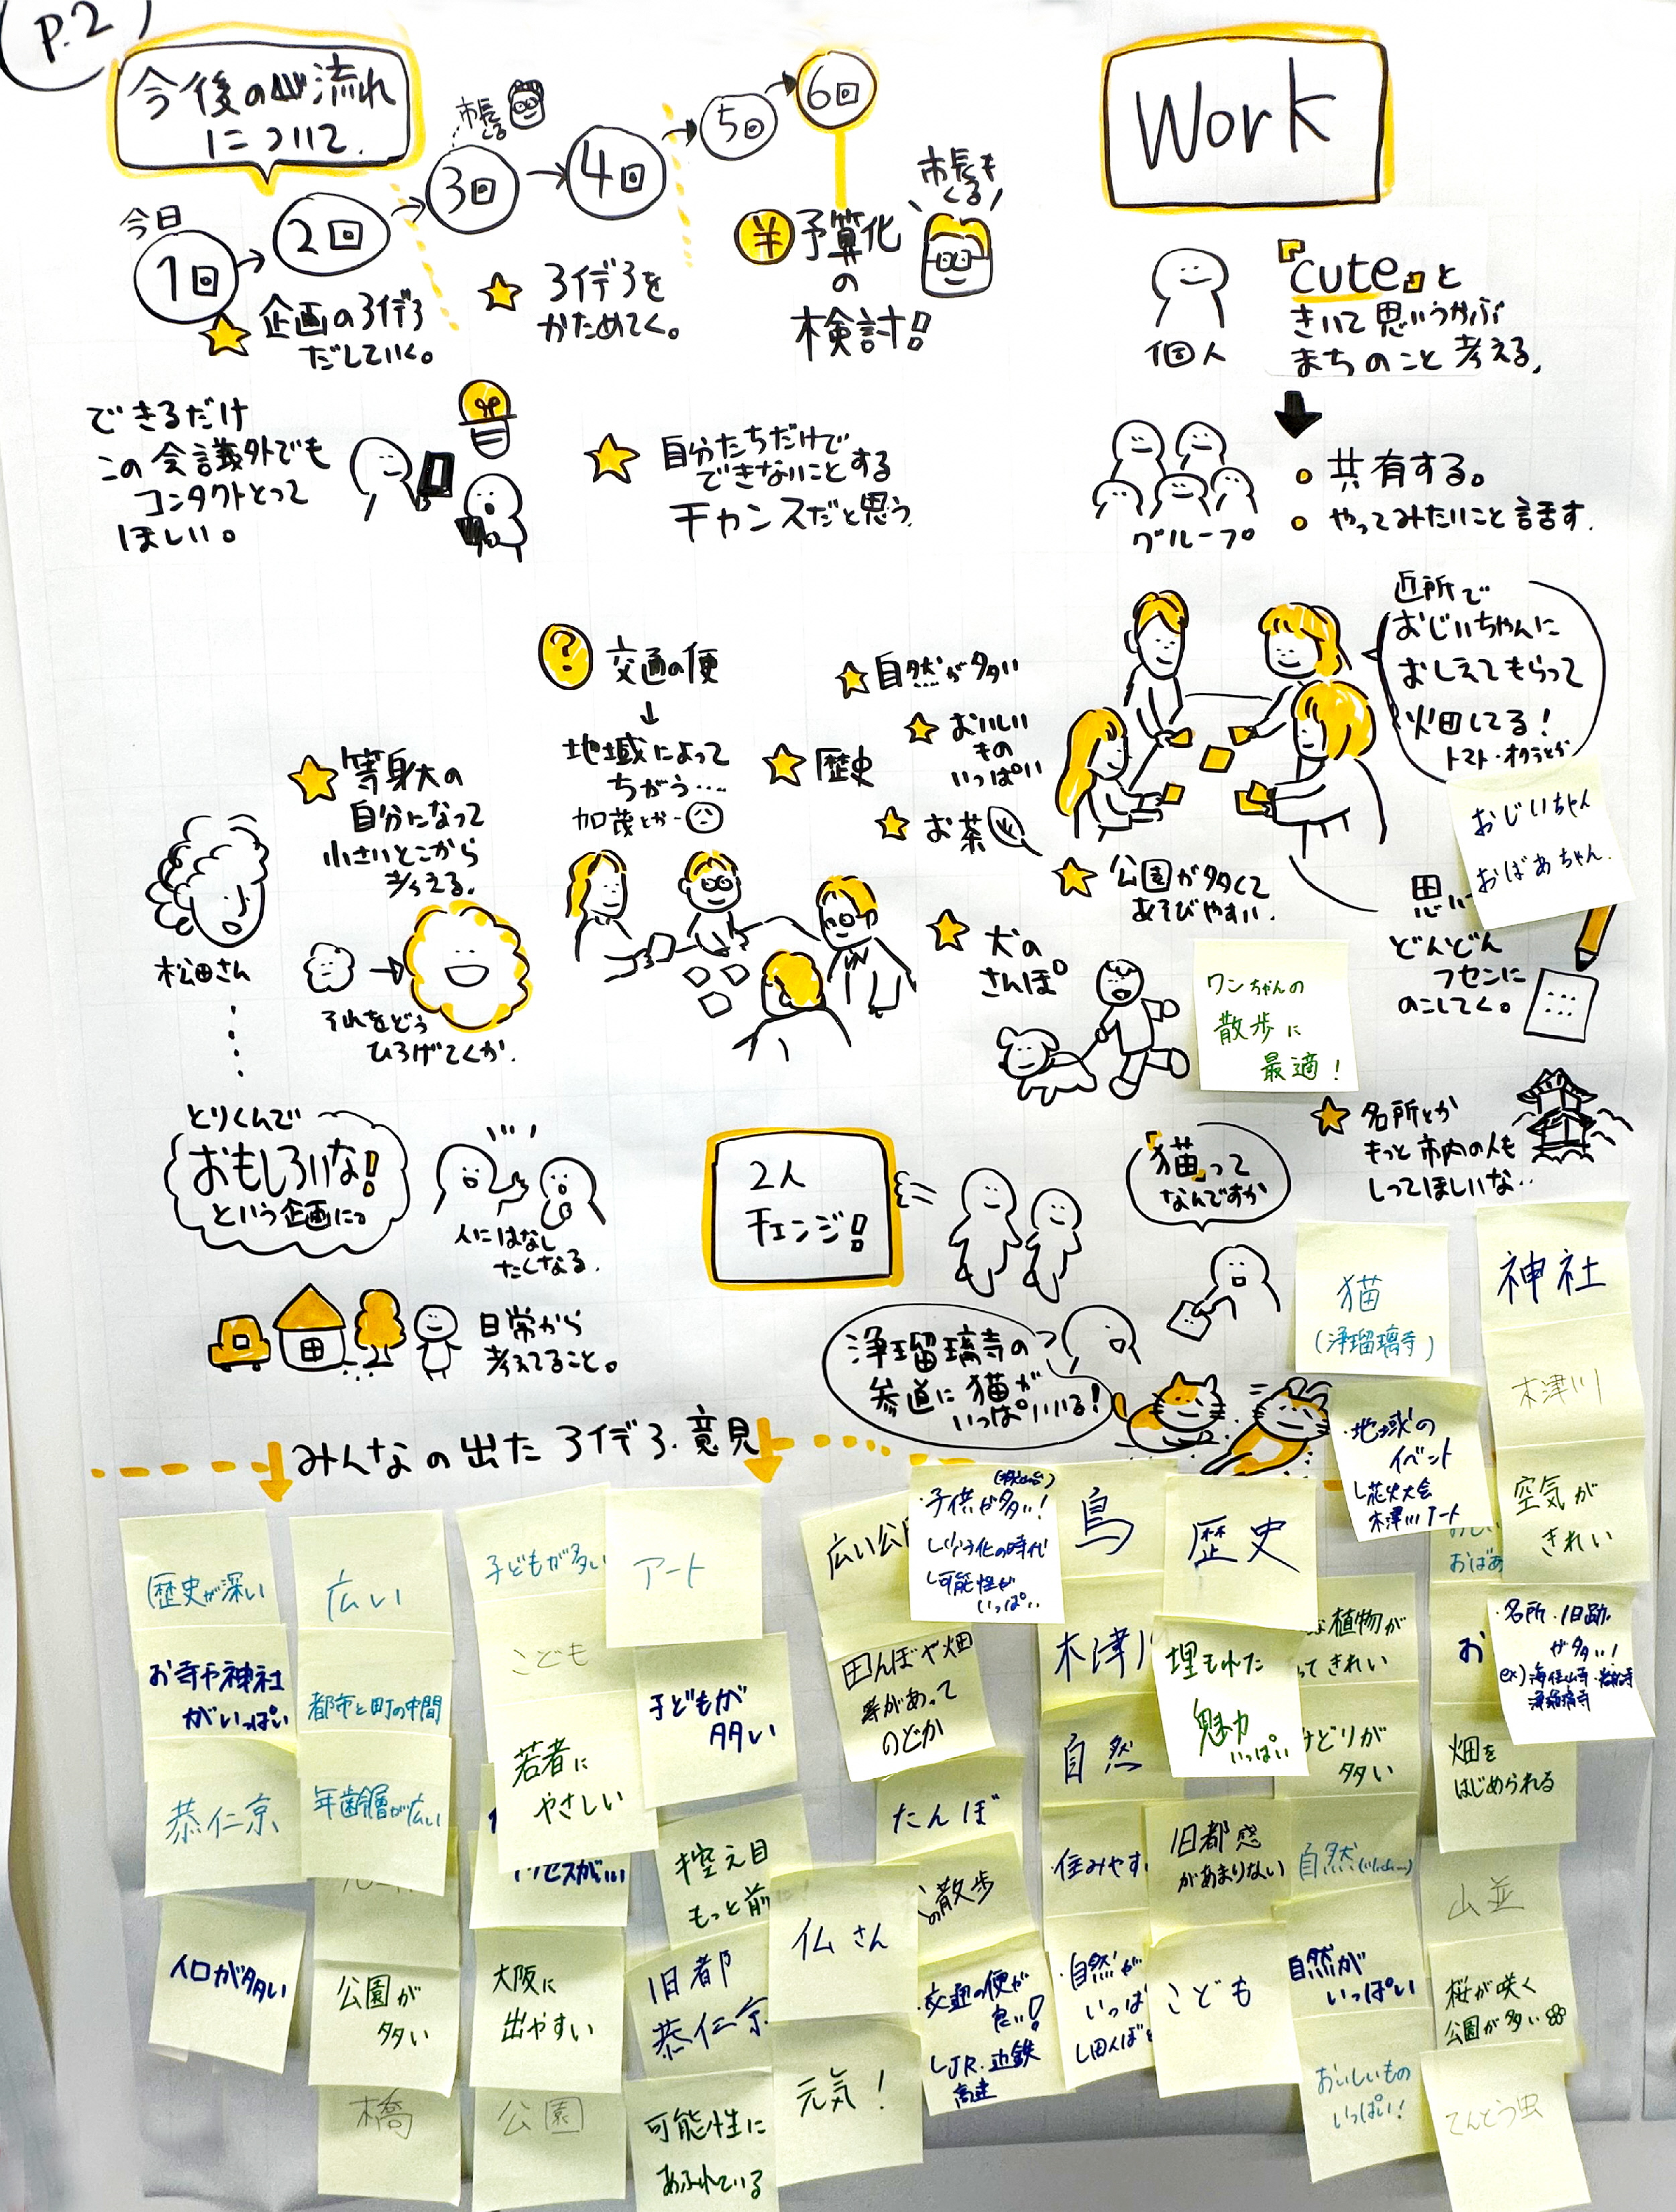 P.2
今後の流れ
について.
今日
1回
2回
市長
くる
3回
4回
5回
6回
企画のアイデア
だしていく。
アイデアを
かためてく。
¥予算化
の
検討!
市長も
くる
できるだけ
この会議外でも
コンタクトとって
ほしい。
自分たちだけで
できないことする
チャンスだと思う
Work
個人
『cute』と
きいて思いうかぶ
まちのこと考える,
グループ
共有する。
やってみたいこと話す.
近所で
おじいちゃんに
おしえてもらって
畑してる!
トマト・オクラとか
おじいちゃん
おばあちゃん.
思い
どんどん
フセンに
のこしてく。
?
交通の便
↓
地域によって
ちがう‥‥
加茂とか
自然が多い
おいしい
もの
いっぱい
歴史
お茶
公園が多くて
あそびやすい.
犬の
さんぽ
ワンちゃんの
散歩に
最適!
名所とか
もっと市内の人も
しってほしいな‥
松田さん
等身大の
自分になって
小さいとこから
考える.
それをどう
ひろげてくか.
とりくんで
おもしろいな!
という企画に
人にはなし
たくなる.
日常から
考えてること。
2人
チェンジ!
「猫」って
なんですか
浄瑠璃寺の
参道に猫が
いっぱいいる!
猫
(浄瑠璃寺)
神社
木津川
空気が
きれい
・地域の
イベント
└花火大会
木津川アート
みんなの出たアイデア・意見
歴史が深い
お寺や神社
がいっぱい
恭仁京
人口が多い
広い
都市と町の中間
年齢層が広い
公園が
多い
橋
子どもが多い
こども
若者に
やさしい
クセスがいい
大阪に
出やすい
公園
アート
子どもが
多い
控え目
もっと前
旧都
恭仁京
可能性に
あふれている
仏さん
元気!
広い公
・子供が多い!
└少子化の時代
└可能性が
いっぱい
田んぼや畑
等があって
のどか
たんぼ
の散歩
・交通の便が
良い!
└JR・近鉄
高速
鳥
木津川
自然
・住みやす
・自然が
いっぱ
└田んぼと
歴史
埋もれた
魅力
いっぱい
旧都感
があまりない
こども
な植物が
ってきれい
みどりが
多い
自然
自然が
いっぱい
おいしいもの
いっぱい!
おばあ
お
・名所・旧跡
が多い!
(ex)海住山寺・岩船寺
浄瑠璃寺
畑を
はじめられる
山並
桜が咲く
公園が多い
てんとう虫